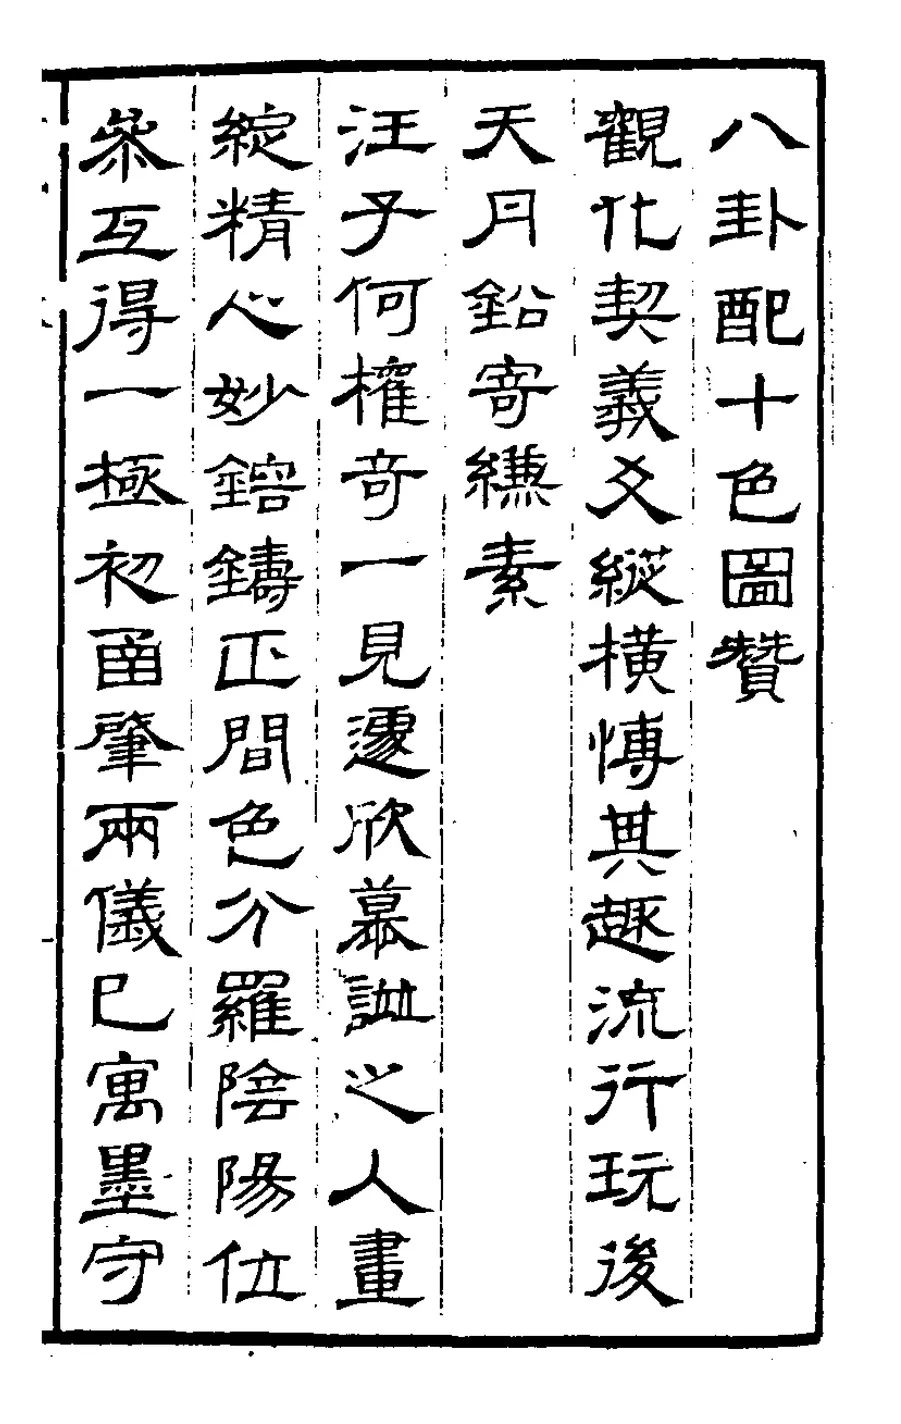 八卦配十色圖贊
觀化契義爻縱橫愽其趣流行玩後
天月鉛寄縑素
汪子何權奇一見遽欣慕誰之人畫
綻精心妙鎔鑄正間色分羅陰陽位
叅互得一極初畱肇兩儀已寓墨守